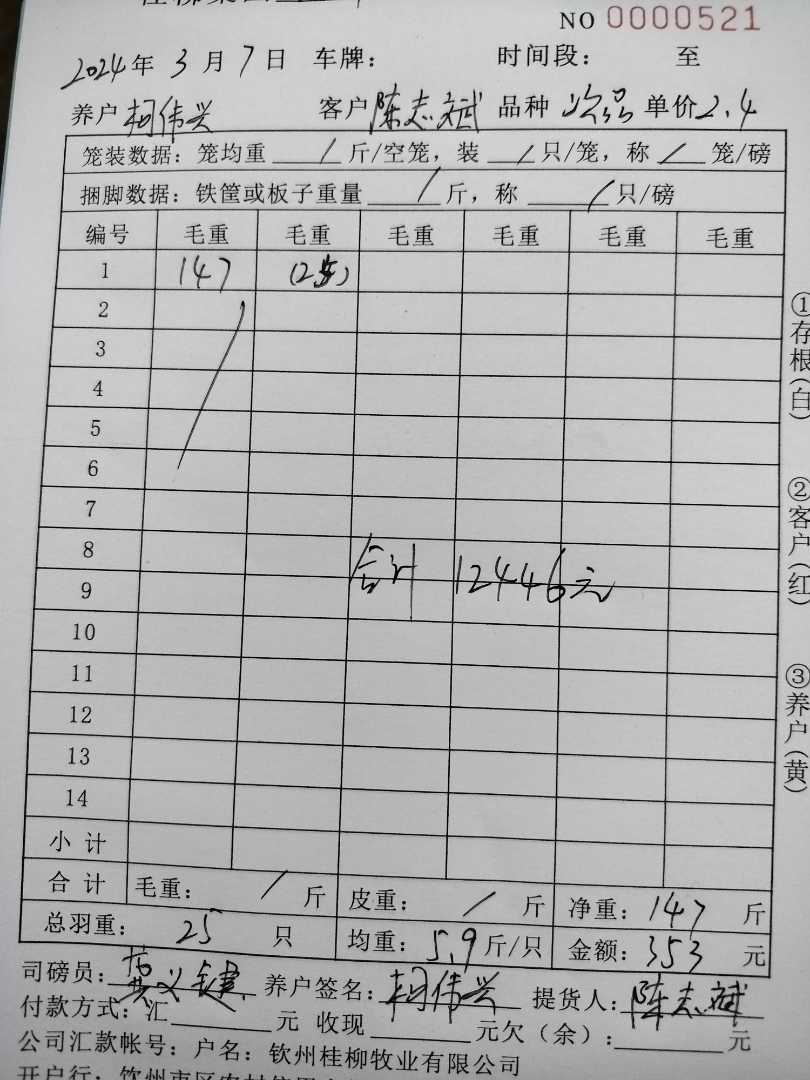 NO 0000521
2024年 3 月 7 日 车牌: 时间段: 至
养户 柯伟兴 客户 陈志斌 品种 次品 单价 2.4
笼装数据: 笼均重 / 斤/空笼, 装 / 只/笼, 称 / 笼/磅
捆脚数据: 铁筐或板子重量 / 斤, 称 / 只/磅
编号 毛重 毛重 毛重 毛重 毛重 毛重
1 147 (25)
2
3
4
5
6
7
8
合计 12446元
9
10
11
12
13
14
小 计
合 计 毛重: / 斤 皮重: / 斤 净重: 147 斤
总羽重: 25 只 均重: 5.9 斤/只 金额: 353 元
司磅员: 义键 养户签名: 柯伟兴 提货人: 陈志斌
付款方式: 汇 元 收现 元欠（余）: 元
公司汇款帐号: 户名: 钦州桂柳牧业有限公司
①存根(白)
②客户(红)
③养户(黄)